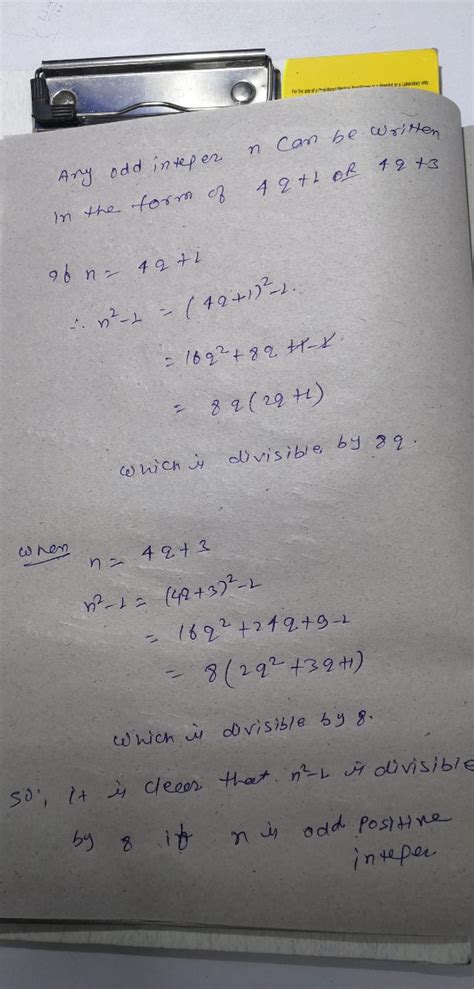 For the use of a Registered Medical Practitioner or a Hospital or a Laboratory only
Any odd integer n can be written
in the form of 4q+1 OR 4q+3
If n = 4q+1
∴ n²-1 = (4q+1)²-1.
= 16q²+8q +1-1
= 8q(2q+1)
which is divisible by 8q.
when n = 4q+3
n²-1 = (4q+3)²-1
= 16q²+24q+9-1
= 8(2q²+3q+1)
which is divisible by 8.
so, it is clear that n²-1 is divisible
by 8 if n is odd positive
integer